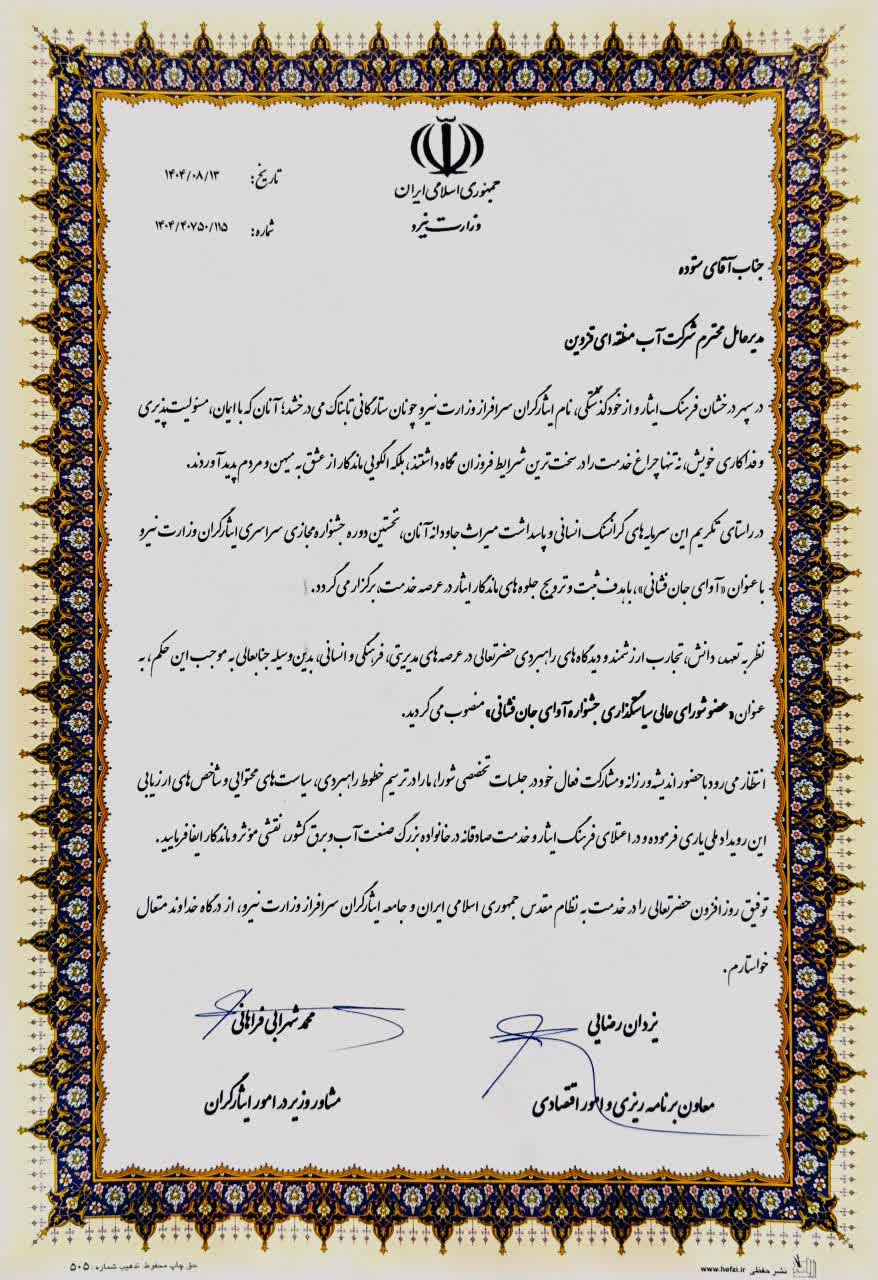 جمهوری اسلامی ایران
وزارت نیرو
تاریخ: ۱۴۰۴/۰۸/۱۳
شماره: ۱۴۰۴/۴۰۷۵۰/۱۱۵
جناب آقای ستوده
مدیرعامل محترم شرکت آب منطقه ای قزوین
در سپهر درخشان فرهنگ ایثار و از خودگذشتگی، نام ایثارگران سرافراز وزارت نیرو چونان ستارگانی تابناک می درخشد؛ آنان که با ایمان، مسئولیت پذیری
و فداکاری خویش، نه تنها چراغ خدمت را در سخت ترین شرایط فروزان نگاه داشتند، بلکه الگویی ماندگار از عشق به میهن و مردم پدید آوردند.
در راستای تکریم این سرمایه های گرانسنگ انسانی و پاسداشت میراث جاودانه آنان، نخستین دوره جشنواره مجازی سراسری ایثارگران وزارت نیرو
با عنوان «آوای جان فشانی»، با هدف ثبت و ترویج جلوه های ماندگار ایثار در عرصه خدمت، برگزار می گردد.
نظر به تعهد، دانش، تجارب ارزشمند و دیدگاه های راهبردی حضرتعالی در عرصه های مدیریتی، فرهنگی و انسانی، بدین وسیله جنابعالی به موجب این حکم، به
عنوان «عضو شورای عالی سیاستگذاری جشنواره آوای جان فشانی» منصوب می گردید.
انتظار می رود با حضور اندیشه ورزانه و مشارکت فعال خود در جلسات تخصصی شورا، ما را در ترسیم خطوط راهبردی، سیاست های محتوایی و شاخص های ارزیابی
این رویداد ملی یاری فرموده و در اعتلای فرهنگ ایثار و خدمت صادقانه در خانواده بزرگ صنعت آب و برق کشور، نقشی مؤثر و ماندگار ایفا فرمایید.
توفیق روزافزون حضرتعالی را در خدمت به نظام مقدس جمهوری اسلامی ایران و جامعه ایثارگران سرافراز وزارت نیرو، از درگاه خداوند متعال
خواستارم.
یزدان رضایی
معاون برنامه ریزی و امور اقتصادی
محمد شهرابی فراهانی
مشاور وزیر در امور ایثارگران
نشر حفظی www.hefzi.ir
حق چاپ محفوظ، تذهیب شماره: ۵۰۵